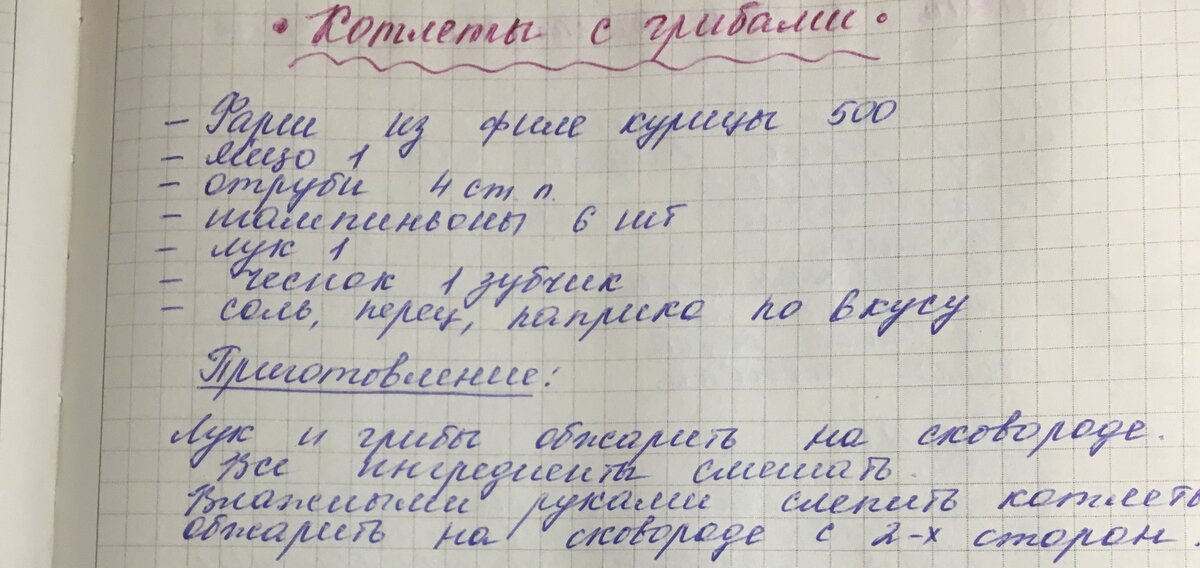 • Котлеты с грибами •
- Фарш из филе курицы 500
- Яйцо 1
- отруби 4 ст. л.
- шампиньоны 6 шт
- лук 1
- чеснок 1 зубчик
- соль, перец, паприка по вкусу
Приготовление:
Лук и грибы обжарить на сковороде.
Все ингредиенты смешать.
Влажными руками слепить котлеты
обжарить на сковороде с 2-х сторон.